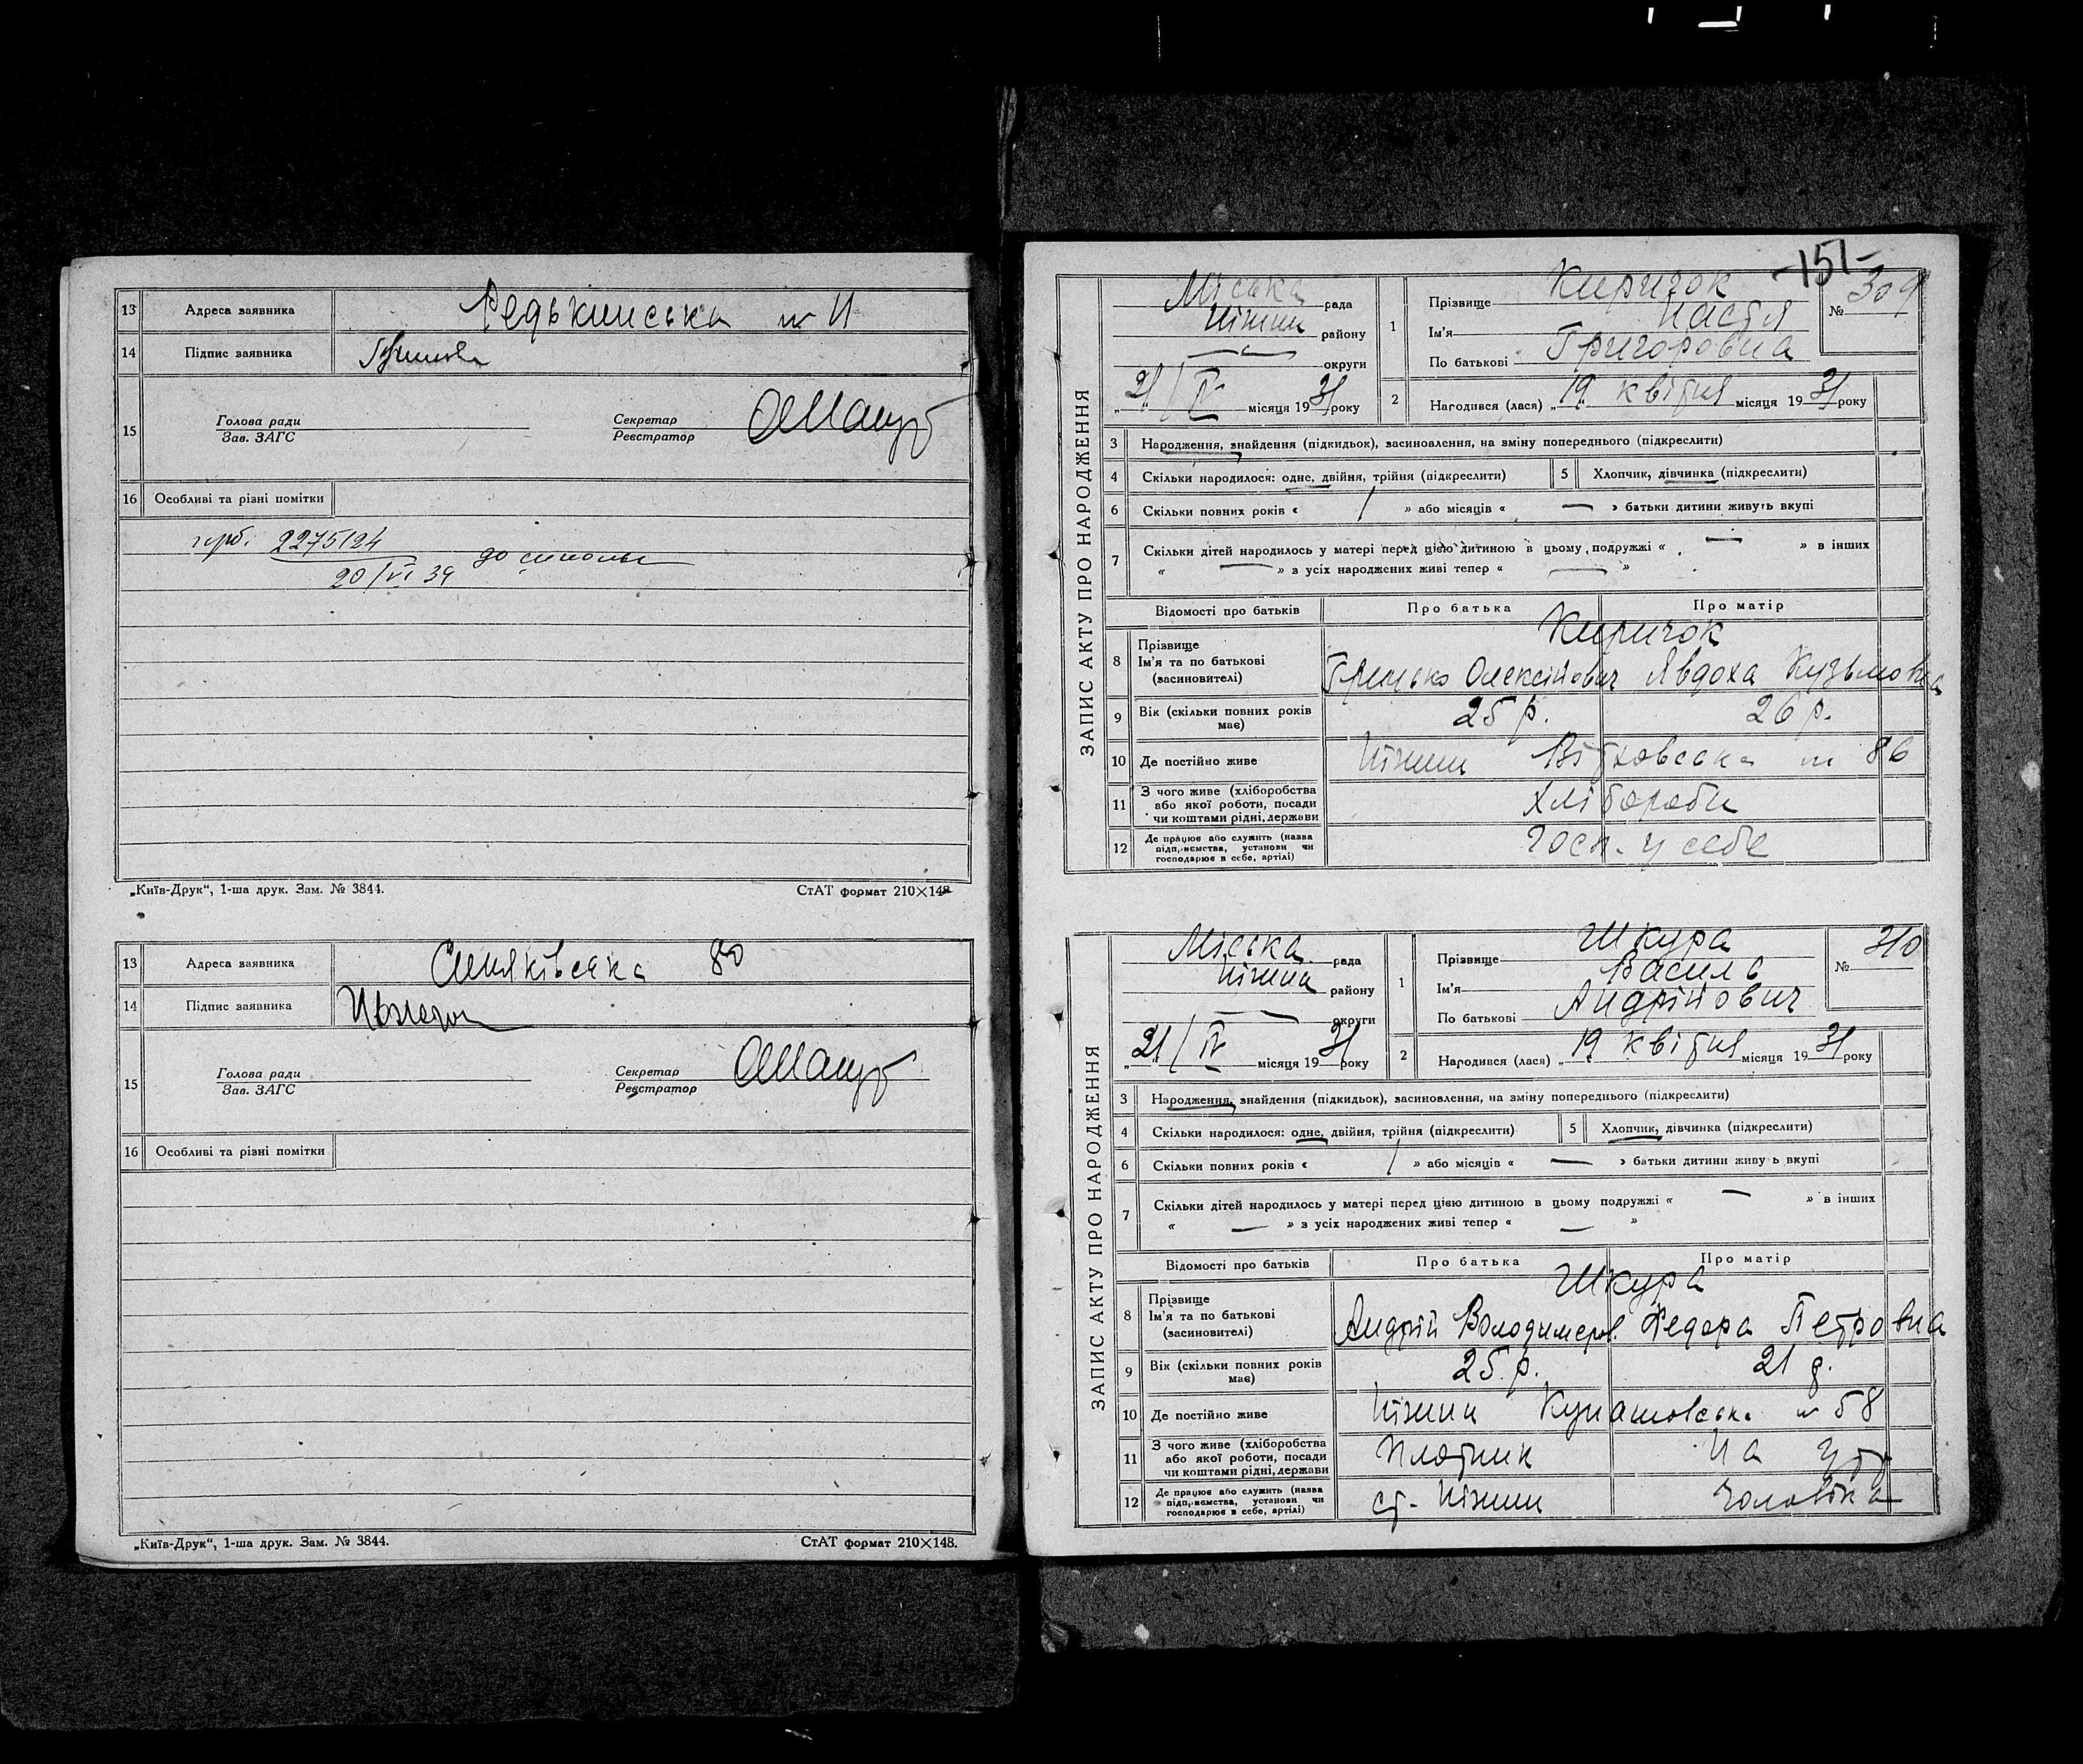 13 Адреса заявника Редькинська № 11
14 Підпис заявника
15 Голова ради
Зав. ЗАГС
Секретар
Реєстратор
16 Особливі та різні помітки
2275124
20/VI 39
„Київ-Друк“, 1-ша друк. Зам. № 3844. СтАТ формат 210×148
13 Адреса заявника Синяківська 80
14 Підпис заявника
15 Голова ради
Зав. ЗАГС
Секретар
Реєстратор
16 Особливі та різні помітки
„Київ-Друк“, 1-ша друк. Зам. № 3844. СтАТ формат 210×148.
-151-
ЗАПИС АКТУ ПРО НАРОДЖЕННЯ
Міська рада
Ніжин району
— округи
„21/IV місяця 1931 року
1 Прізвище Киричок
Ім'я Настя
По батькові Григоровна
№ 309
2 Нагодився (лася) „19“ квітня місяця 1931 року
3 Народження, знайдення (підкидьок), засиновлення, на зміну попереднього (підкреслити)
4 Скільки народилося: одне, двійня, трійня (підкреслити) 5 Хлопчик, дівчинка (підкреслити)
6 Скільки повних років « / » або місяців « — » батьки дитини живуть вкупі
7 Скільки дітей народилось у матері перед цією дитиною в цьому подружжі « — » в інших
« — » з усіх народжених живі тепер « — »
Відомості про батьків Про батька Про матір
8 Прізвище Киричок
Ім'я та по батькові Грицько Олексійович Явдоха Кузьмовна
(засиновителі)
9 Вік (скільки повних років має) 25 р. 26 р.
10 Де постійно живе Ніжин № 86
11 З чого живе (хліборобства або якої роботи, посади чи коштами рідні, держави Хлібороби
12 Де працює або служить (назва підприємства, установи чи господарює в себе, артілі) Госп. у себе
ЗАПИС АКТУ ПРО НАРОДЖЕННЯ
Міська рада
Ніжин району
— округи
„21/IV місяця 1931 року
1 Прізвище Шкура
Ім'я Василь
По батькові Андрійович
№ 310
2 Народився (лася) „19 квітня місяця 1931 року
3 Народження, знайдення (підкидьок), засиновлення, на зміну попереднього (підкреслити)
4 Скільки народилося: одне, двійня, трійня (підкреслити) 5 Хлопчик, дівчинка (підкреслити)
6 Скільки повних років « / » або місяців « — » батьки дитини живу ь вкупі
7 Скільки дітей народилось у матері перед цією дитиною в цьому подружжі « — » в інших
« — » з усіх народжених живі тепер « — »
Відомості про батьків Про батька Про матір
8 Прізвище Шкура
Ім'я та по батькові Андрій Володимеров. Федора Петровна
(засиновителі)
9 Вік (скільки повних років має) 25 р. 21 р.
10 Де постійно живе Ніжин Кунашовська № 58
11 З чого живе (хліборобства або якої роботи, посади чи коштами рідні, держави Плотник На ут.
12 Де працює або служить (назва підприємства, установи чи господарює в себе, артілі) ст. Ніжин чоловіка